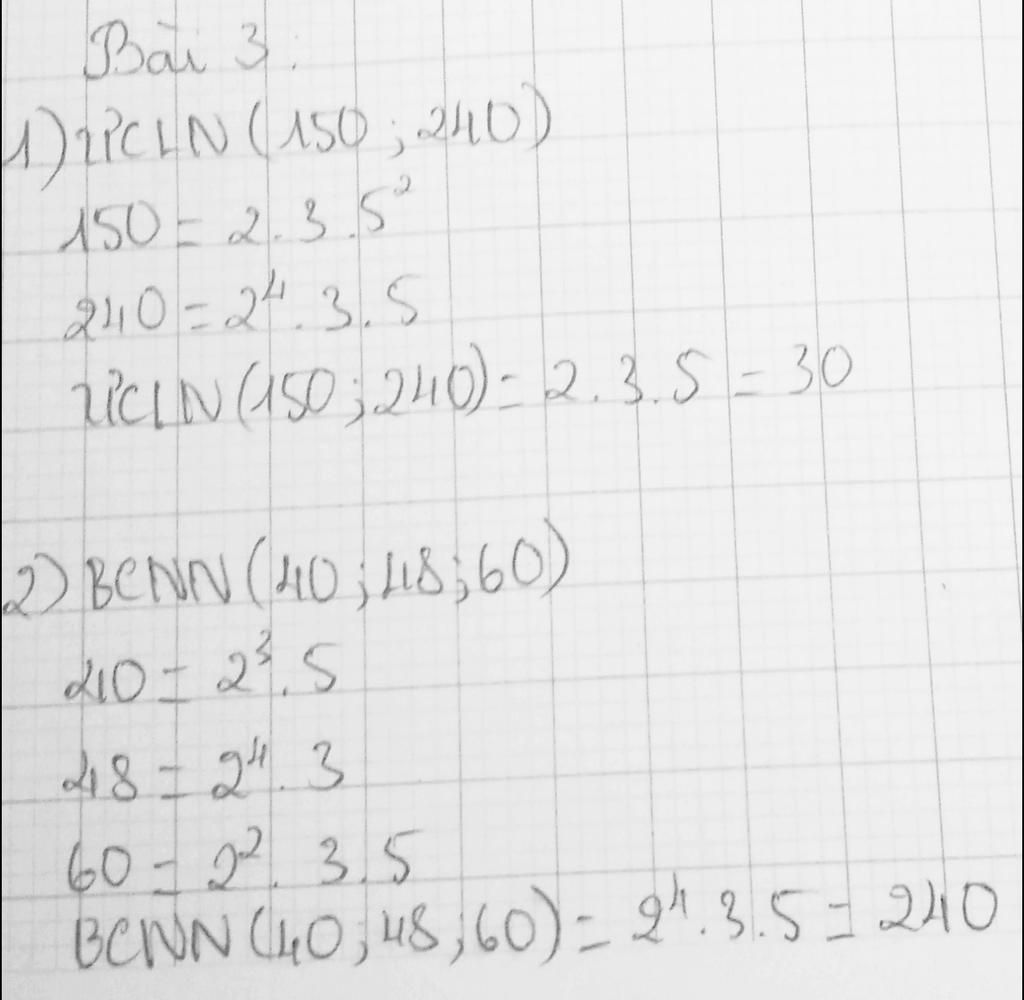 Bài 3:
1) ƯCLN (150 ; 240)
150 = 2 . 3 . 5²
240 = 2⁴ . 3 . 5
ƯCLN (150 ; 240) = 2 . 3 . 5 = 30
2) BCNN (40 ; 48 ; 60)
40 = 2³ . 5
48 = 2⁴ . 3
60 = 2² . 3 . 5
BCNN (40 ; 48 ; 60) = 2⁴ . 3 . 5 = 240